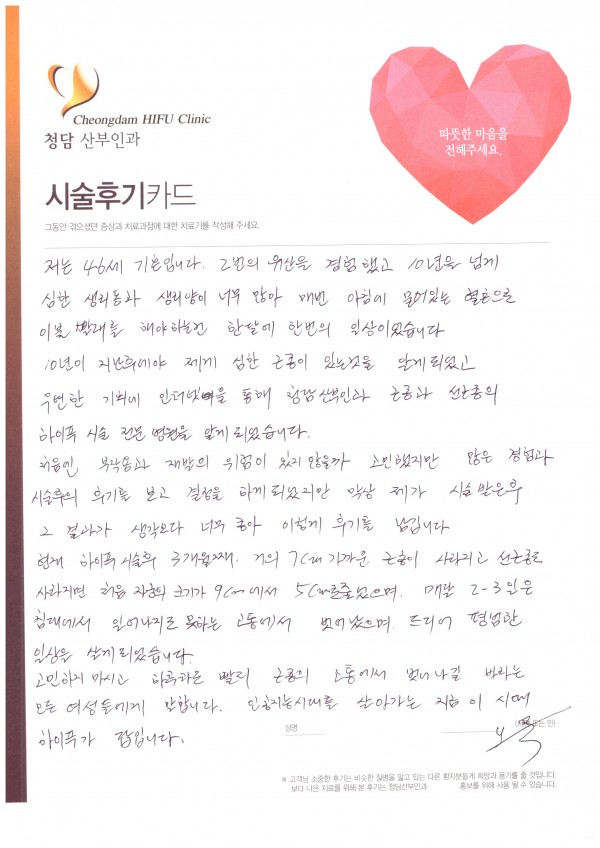 Cheongdam HIFU Clinic
청담 산부인과
따뜻한 마음을
전해주세요.
시술후기카드
그동안 겪으셨던 증상과 치료과정에 대한 치료기를 작성해 주세요.
저는 46세 기혼입니다. 2번의 유산을 경험했고 10년을 넘게
심한 생리통과 생리양이 너무 많아 매번 아침에 묻어있는 혈흔으로
이불 빨래를 해야하는건 한달에 한번의 일상이었습니다
10년이 지난후에야 제게 심한 근종이 있는것을 알게되었고
우연한 기회에 인터넷을 통해 청담산부인과 근종과 선근종의
하이푸 시술 전문 병원을 알게 되었습니다.
처음엔 부작용과 재발의 위험이 있지 않을까 고민했지만 많은 경험과
시술후의 후기를 보고 결정을 하게 되었지만 막상 제가 시술받은후
그 결과가 생각보다 너무 좋아 이렇게 후기를 남깁니다
현재 하이푸 시술후 3개월째. 거의 7cm 가까운 근종이 사라지고 선근종도
사라지면 처음 자궁의 크기가 9cm에서 5cm로줄었으며. 매달 2-3일은
침대에서 일어나지도 못하는 고통에서 벗어났으며. 드디어 평범한
일상을 살게되었습니다.
고민하지 마시고 하루라도 빨리 근종의 고통에서 벗어나길 바라는
모든 여성들에게 말합니다. 인공지능시대를 살아가는 지금 이 시대
하이푸가 답입니다.
성명
※ 고객님 소중한 후기는 비슷한 질병을 앓고 있는 다른 환자분들게 희망과 용기를 줄 것입니다.
보다 나은 치료를 위해 본 후기는 청담산부인과 홍보를 위해 사용 될 수 있습니다.